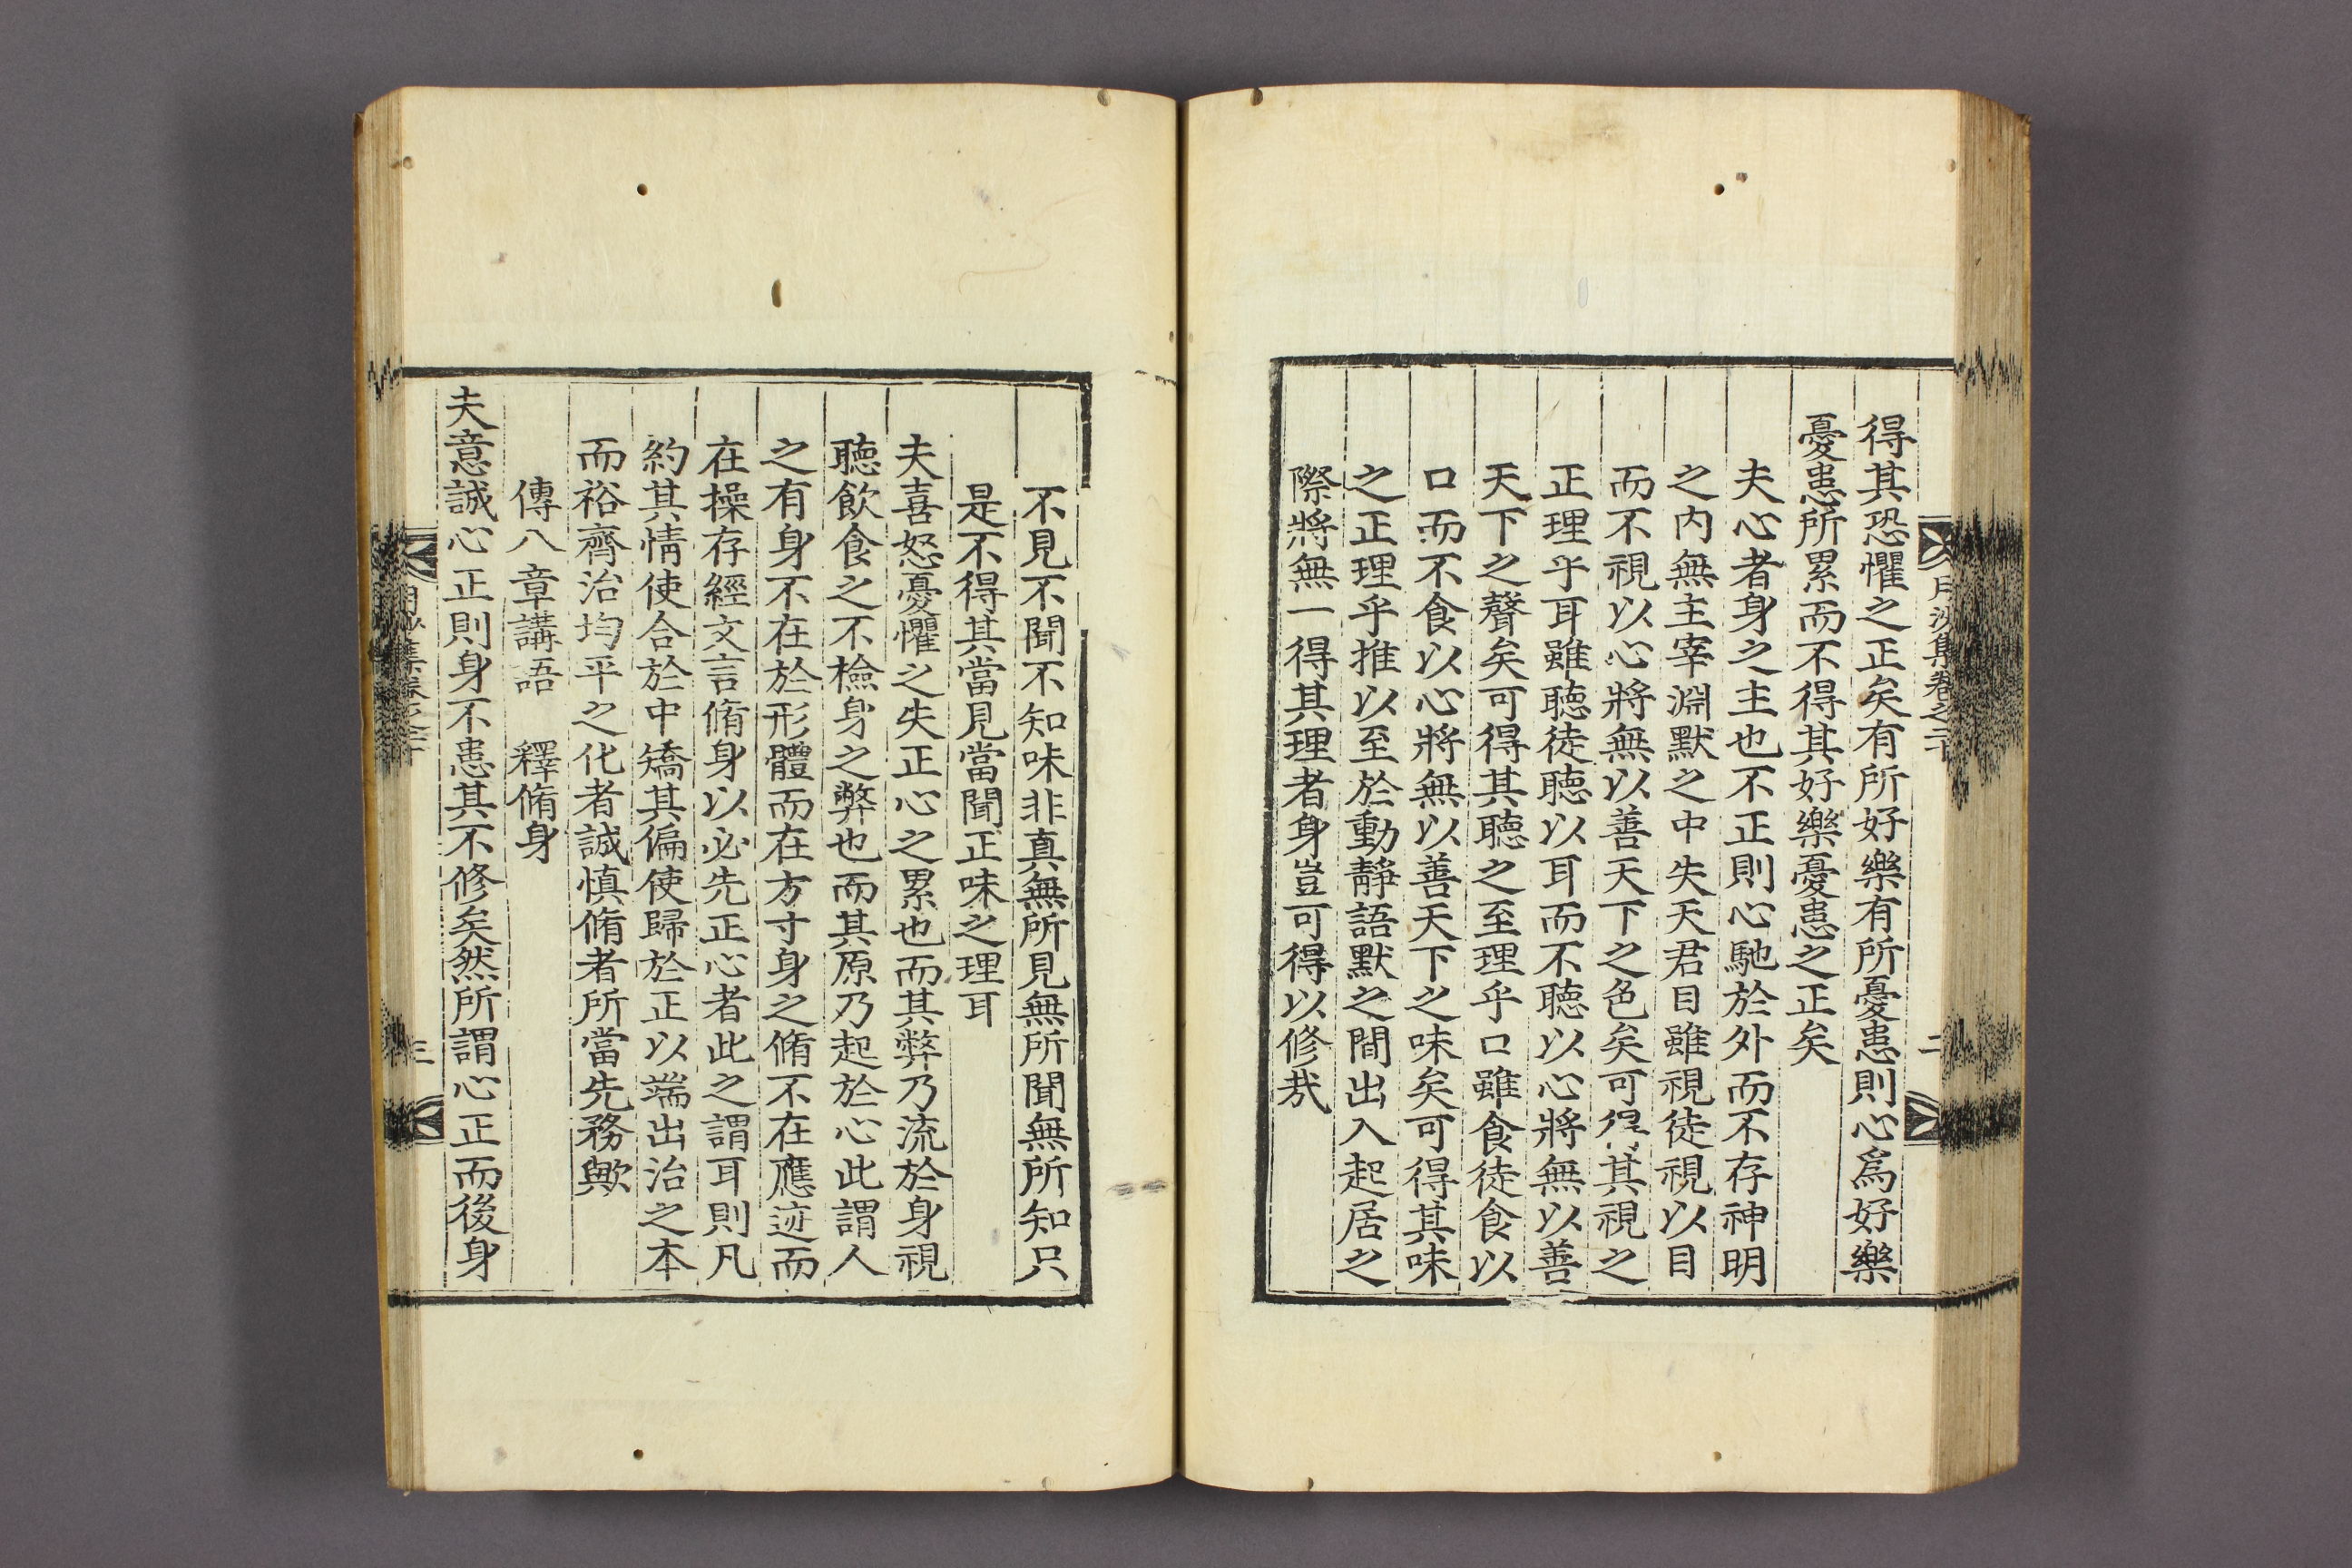 月沙集卷之二十
二
得其恐懼之正矣有所好樂有所憂患則心爲好樂
憂患所累而不得其好樂憂患之正矣
夫心者身之主也不正則心馳於外而不存神明
之內無主宰淵默之中失天君目雖視徒視以目
而不視以心將無以善天下之色矣可得其視之
正理乎耳雖聽徒聽以耳而不聽以心將無以善
天下之聲矣可得其聽之至理乎口雖食徒食以
口而不食以心將無以善天下之味矣可得其味
之正理乎推以至於動靜語默之間出入起居之
際將無一得其理者身豈可得以修哉
不見不聞不知味非真無所見無所聞無所知只
是不得其當見當聞正味之理耳
夫喜怒憂懼之失正心之累也而其弊乃流於身視
聽飲食之不檢身之弊也而其原乃起於心此謂人
之有身不在於形體而在方寸身之脩不在應迹而
在操存經文言脩身以必先正心者此之謂耳則凡
約其情使合於中矯其偏使歸於正以端出治之本
而裕齊治均平之化者誠慎脩者所當先務歟
傳八章講語　釋脩身
夫意誠心正則身不患其不修矣然所謂心正而後身
三